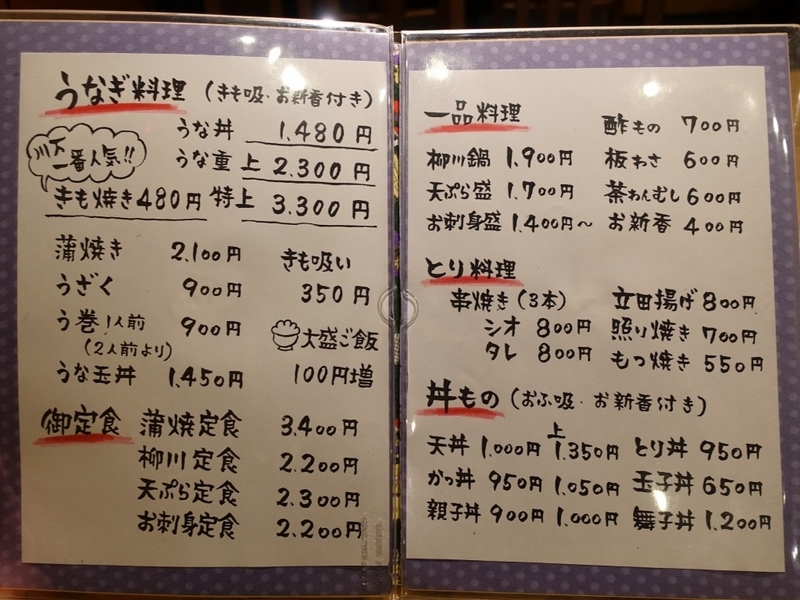 うなぎ料理 (きも吸・お新香付き)
うな丼 1.480円
一番人気!!
うな重 上 2.300円
きも焼き480円 特上 3.300円
蒲焼き 2.100円
きも吸い
350円
うざく 900円
う巻 1人前 900円
(2人前より)
大盛ご飯
100円増
うな玉丼 1.450円
御定食 蒲焼定食 3.400円
柳川定食 2.200円
天ぷら定食 2.300円
お刺身定食 2.200円
一品料理
酢もの 700円
柳川鍋 1.900円 板わさ 600円
天ぷら盛 1.700円 茶わんむし600円
お刺身盛 1.400円～ お新香 400円
とり料理
串焼き(3本) 立田揚げ800円
シオ 800円 照り焼き 700円
タレ 800円 もつ焼き 550円
丼もの (おふ吸・お新香付き)
天丼 1.000円 上1.350円 とり丼 950円
かつ丼 950円 1.050円 玉子丼 650円
親子丼 900円 1.000円 舞子丼 1.200円